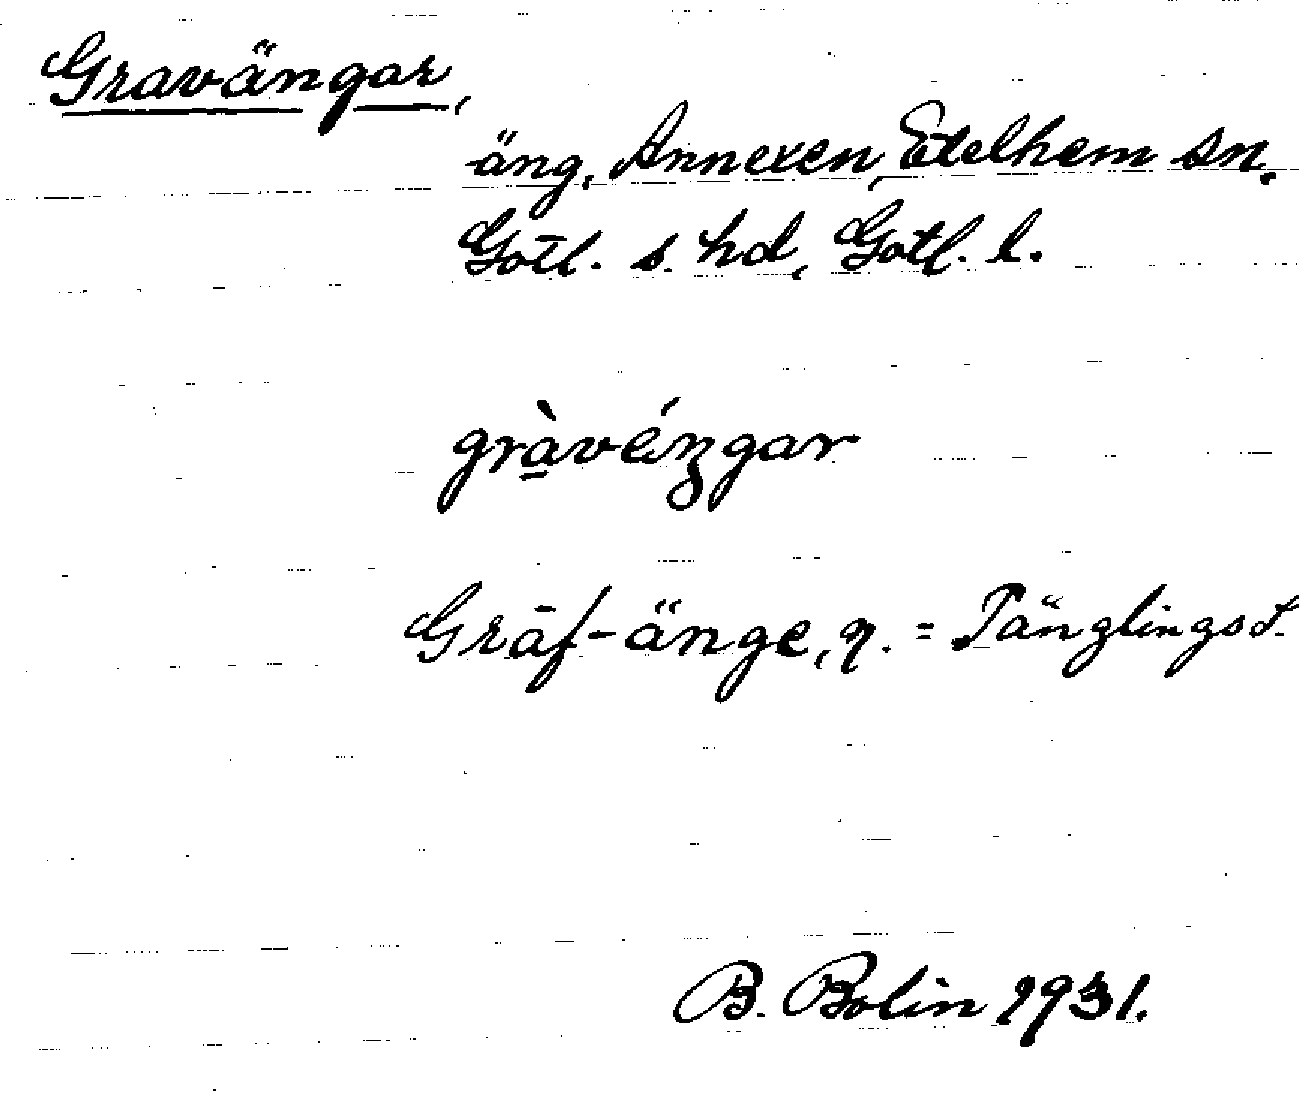 Gravängar,
äng, Annexen, Etelhem sn.
Gotl. s. hd, Gotl. l.
gràvéŋgar
Gräf-änge, n. = Tänglings S.
B. Bolin 1931.